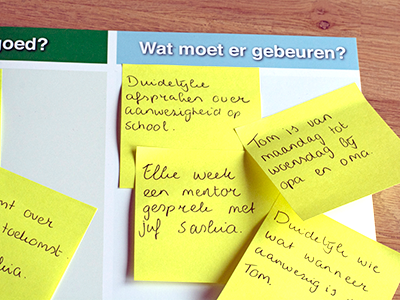 goed?
Wat moet er gebeuren?
Duidelijke
afspraken over
aanwezigheid op
school.
Tom is van
maandag tot
woensdag bij
opa en oma
Elke week
een mentor
gesprek met
juf Saskia.
over
toekomst.
Duidelijk wie
wat wanneer
aanwezig is
Tom.